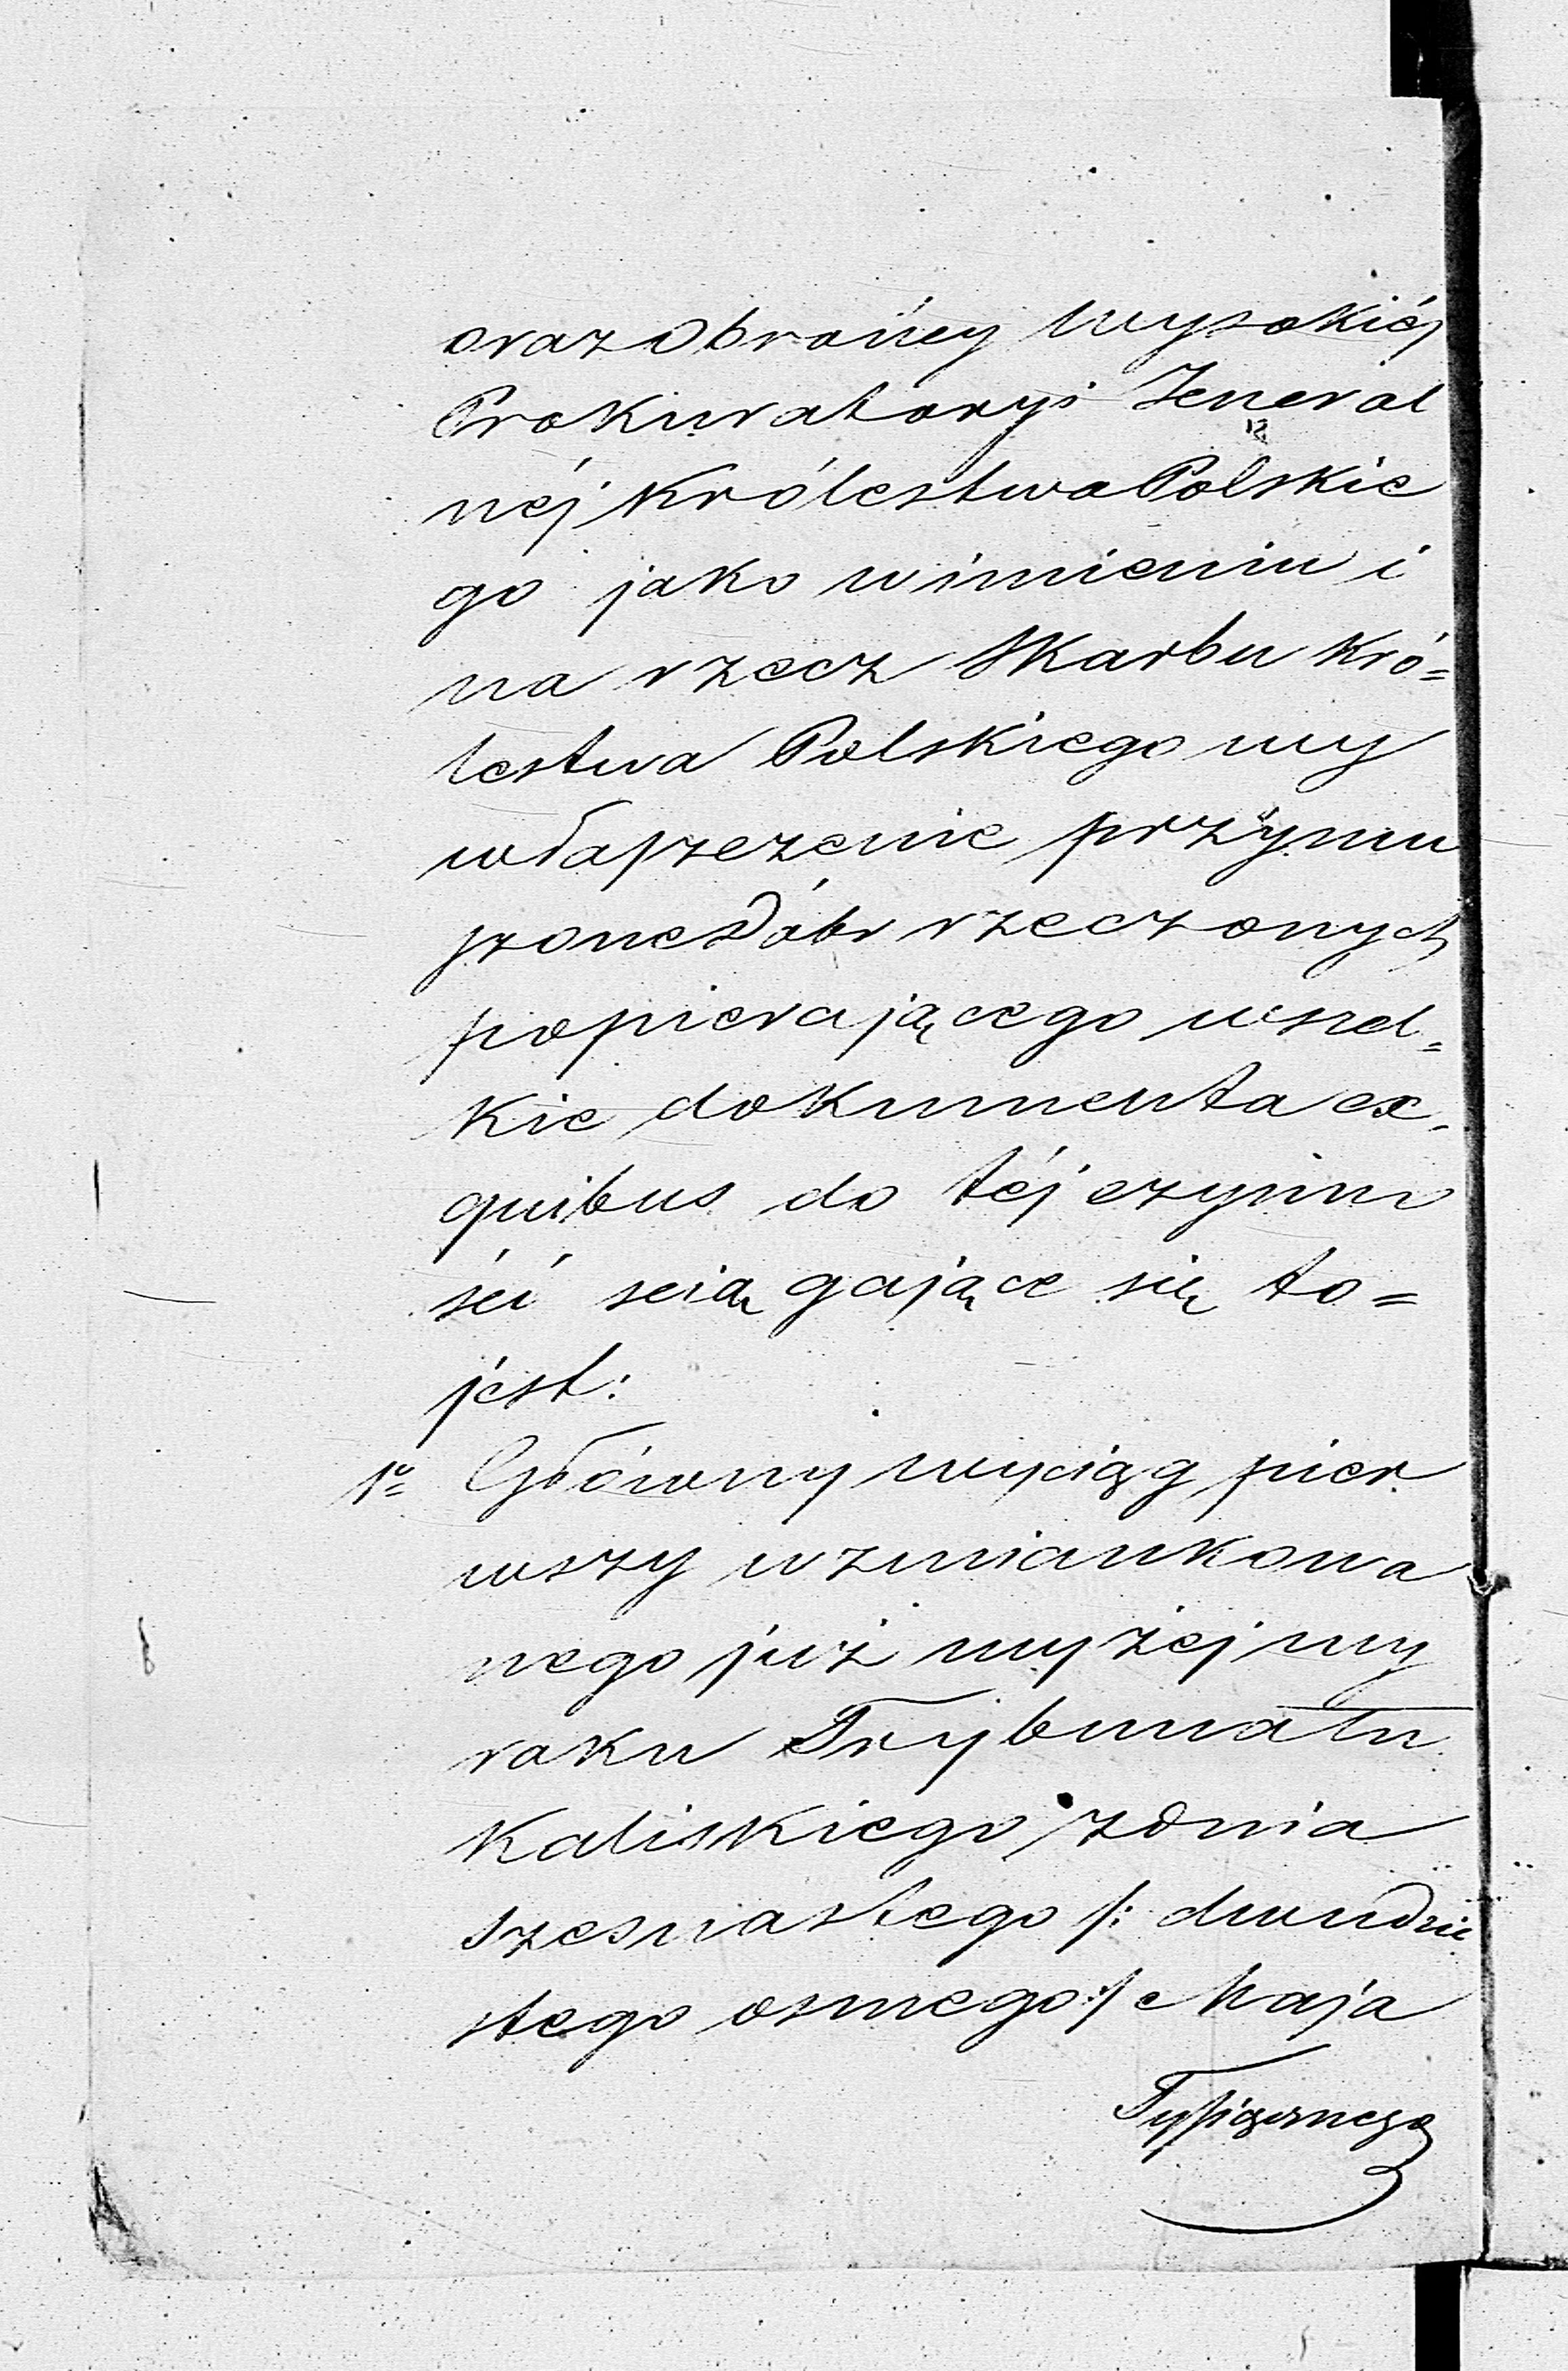 oraz Obrońcy Wysokiéj
Prokuratoryi Jeneral
néj Królestwa Polskie
go jako w imieniu i
na rzecz Skarbu Kró=
lestwa Polskiego wy
właszczenie przymu
szone Dóbr rzeczonych
popierającego wszel=
kie dokumenta ex
quibus do téj czynno
ści sciągające się to=
jest:
1º Główny wyciąg pier
wszy wzmiankowa
nego już wyżej wy
roku Trybunału
Kaliskiego z dnia
szesnastego /: dwudzie
stego osmego :/ Maja
Tysiącznego